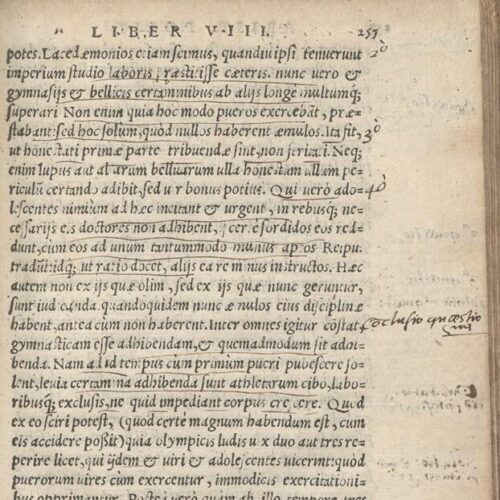 LIBER VIII. 257
potes. Lacedæmonios etiam scimus, quandiu ipsi tenuerunt
imperium studio laboris præstitisse cæteris. nunc uero &
gymnasijs & bellicis certaminibus ab alijs longè multumq;
superari Non enim quia hoc modo pueros exercebāt, præ-
stabant: sed hoc solum, quòd nullos haberent æmulos. Ita fit,
ut honestati primæ parte tribuendæ sint, non feritati. Neq;
enim lupus aut aliarum belluarum ulla honestum aliam pe-
riculū certando adibit, sed uir bonus potius. Qui uerò ado-
lescentes nimium ad hæc incitant & urgent, in rebusq; ne-
cessarijs eis doctores non adhibent, hi certè sordidos eos red-
dunt, cum eos ad unum tantummodo munus aptos Reipu.
tradūt: idq; ut ratio docet, alijs ea re minus instructos. Hæc
autem non ex ijs quæ olim, sed ex ijs quæ nunc geruntur,
sunt iudicanda. quandoquidem nunc æmulos eius disciplinæ
habent, antea cum non haberent. Inter omnes igitur cōstat
gymnasticam esse adhibendam, & quemadmodum sit adhi-
benda. Nam ad id tempus cùm primùm pueri pubescere so-
lent, leuia certamina adhibenda sunt athletarum cibo, labo-
ribusq; exclusis, ne quid impediant corpus crescere. Quod
ex eo sciri potest, (quod certè magnum habendum est, cum
eis accidere poßit) quia olympicis ludis uix duo aut tres re-
perire licet, qui ijdem & uiri & adolescentes uicerint: quòd
puerorum uires cum exercentur, immodicis exercitationi-
bus opprimantur. Posteà uerò quàm ab illo tempore tres
2º
3º
4º